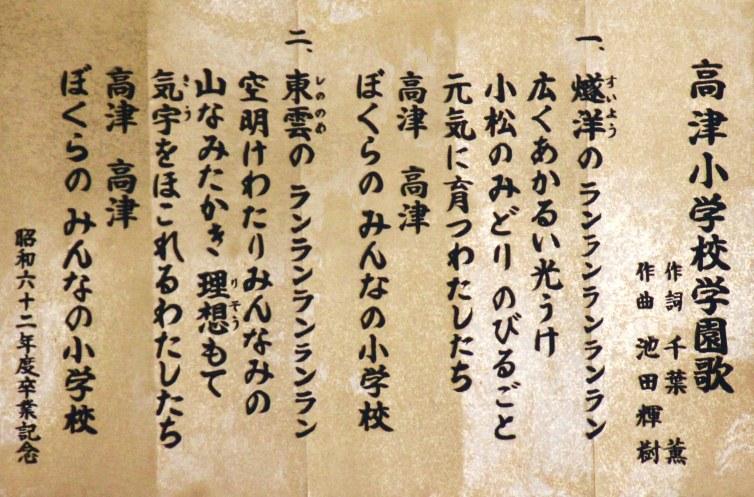 高津小学校学園歌
作詞 千葉 薫
作曲 池田輝樹
一、燧洋の ランランランランラン
すいよう
広くあかるい光うけ
小松のみどり のびるごと
元気に育つわたしたち
高津 高津
ぼくらの みんなの小学校
二、東雲の ランランランランラン
しののめ
空明けわたりみんなみの
山なみたかき 理想もて
りそう
気宇をほこれるわたしたち
きう
高津 高津
ぼくらの みんなの小学校
昭和六十二年度卒業記念